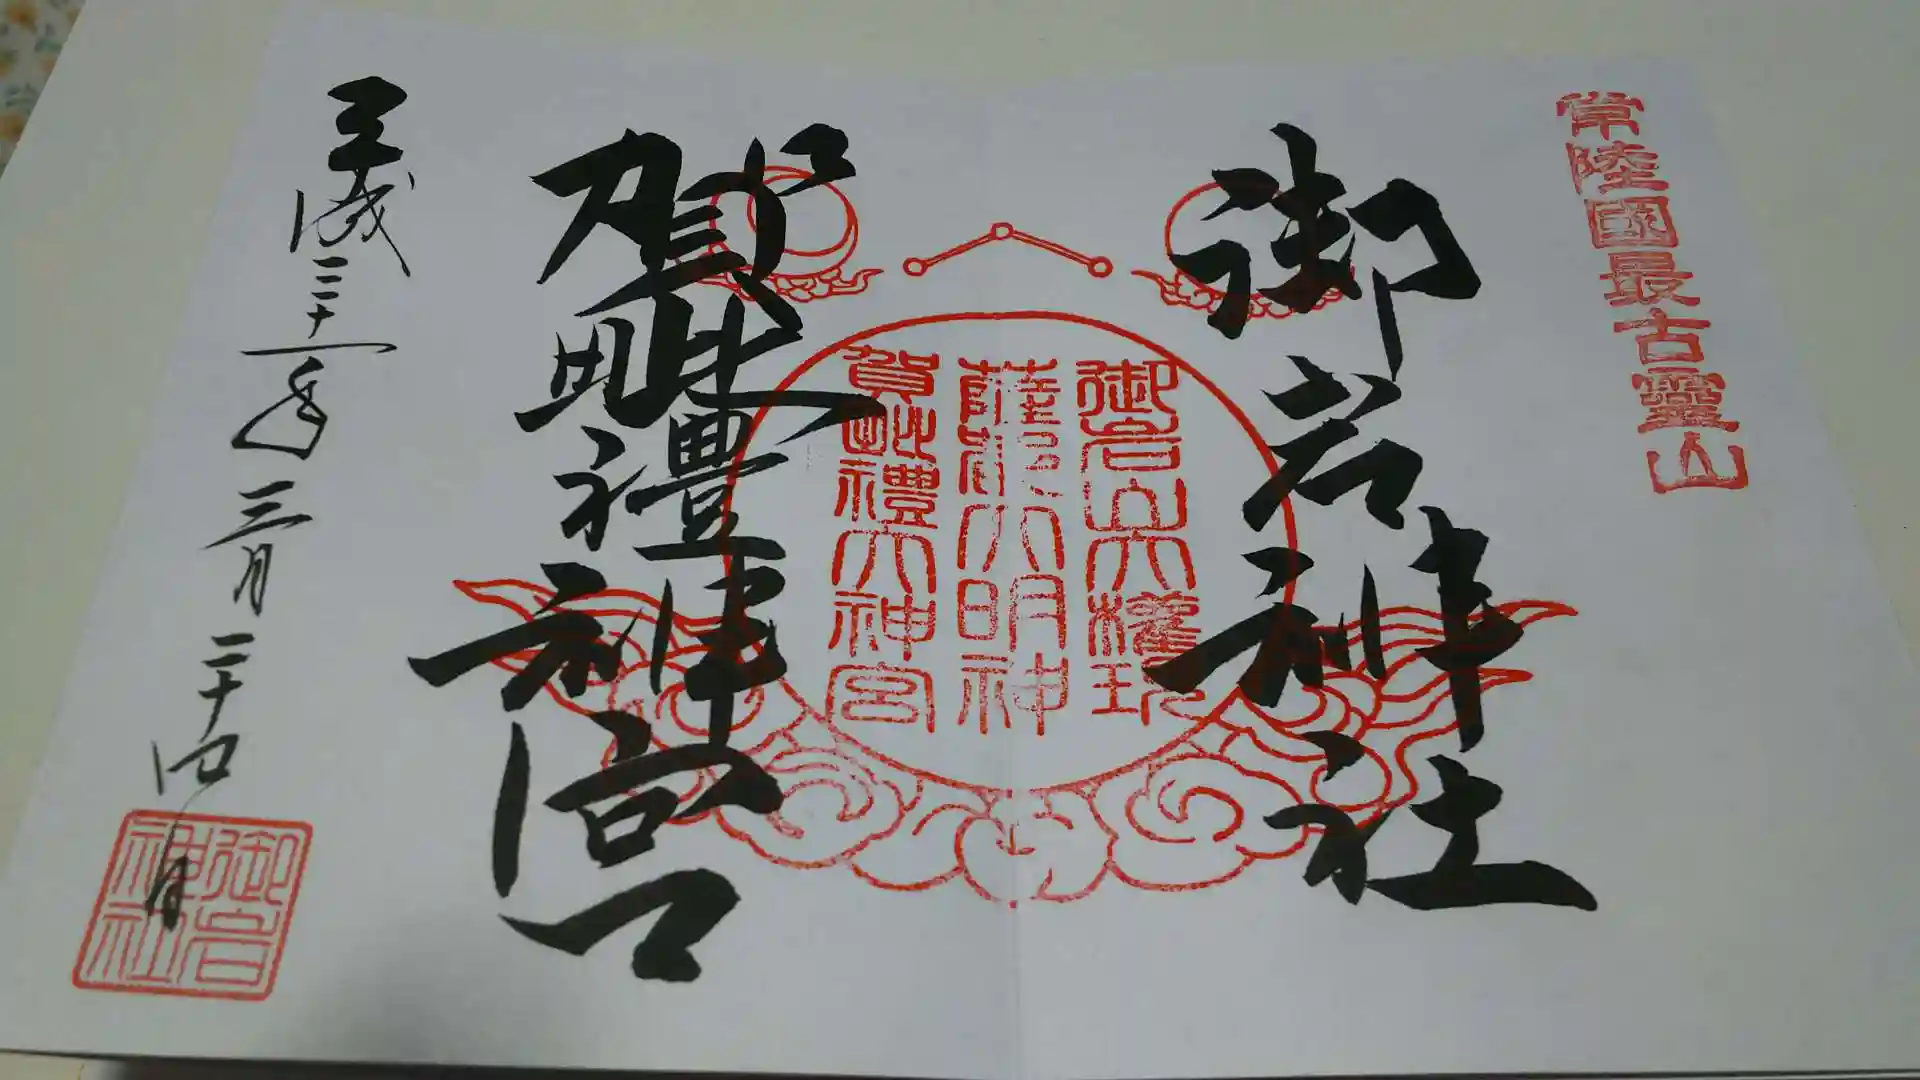 常陸國最古靈山
御岩神社
御岩山大權現
薩都大明神
賀毗禮大神宮
賀毗禮神宮
平成三十一年三月二十四日
御岩
神社